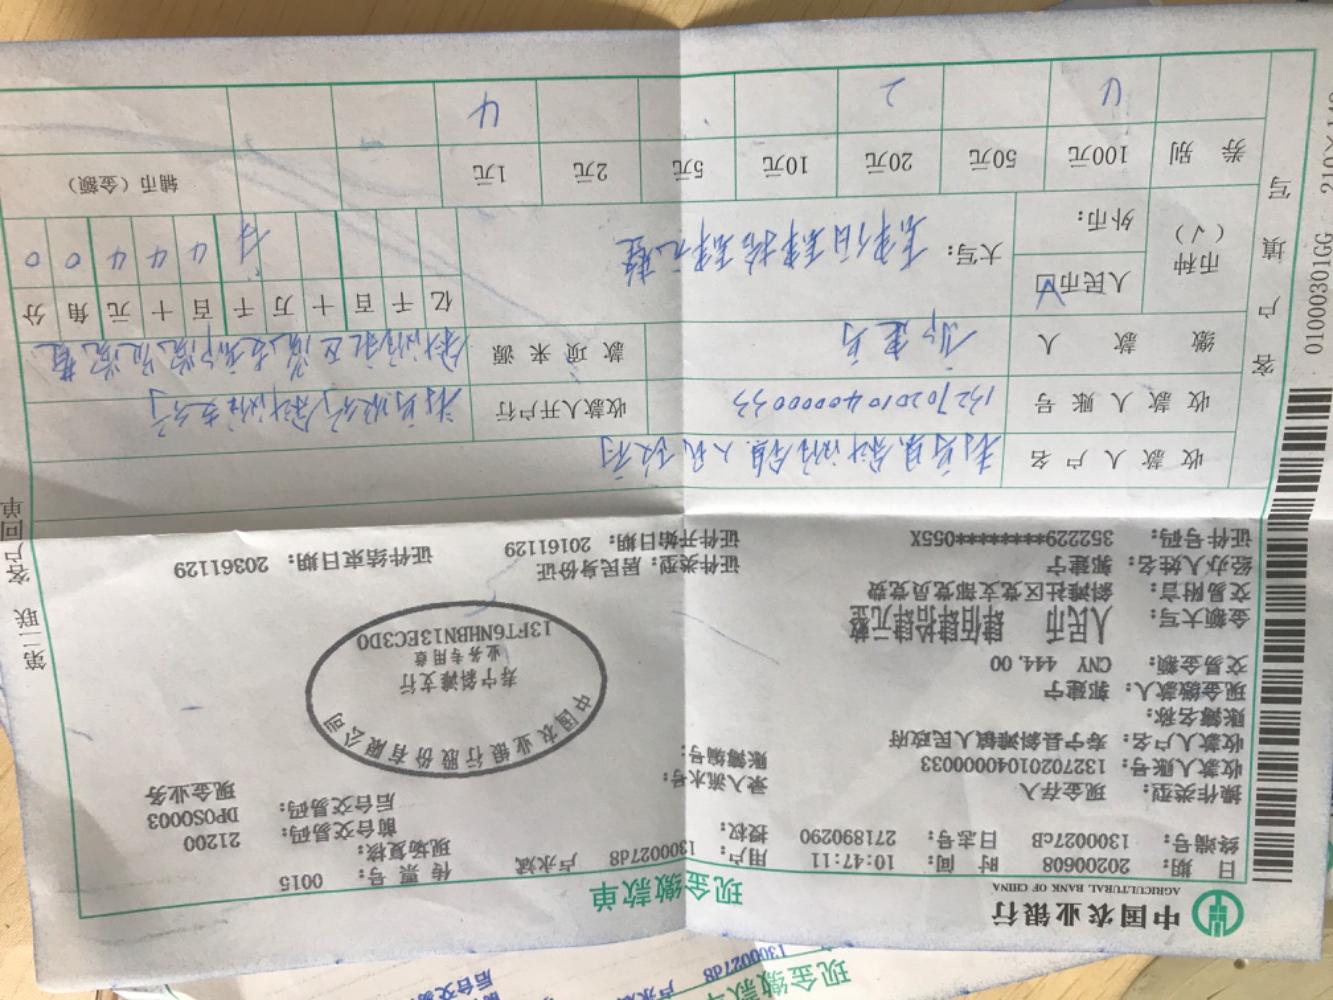 中国农业银行
AGRICULTURAL BANK OF CHINA
现金缴款单
日 期: 20200608 时 间: 10:47:11 用户: 1300027d8 卢永斌 传 票 号: 0015
终端号: 1300027cB 日志号: 271890290 授权: 现场复核:
前台交易码: 21200
操作类型: 现金存入 录入流水号: 后台交易码: DPOS0003 现金业务
收款人账号: 13270201040000033 账簿编号:
收款人户名: 寿宁县斜滩镇人民政府
账簿名称:
现金缴款人: 郭建宁
交易金额: CNY 444.00
金额大写: 人民币 肆佰肆拾肆元整
交易附言: 斜滩社区党支部党员党费
经办人姓名: 郭建宁 证件类型: 居民身份证
证件号码: 352229*********055X 证件开始日期: 20161129 证件结束日期: 20361129
中国农业银行股份有限公司
寿宁斜滩支行
业务专用章
13FT6NHBN13EC3D0
收款人户名 寿宁县斜滩镇人民政府
收款人账号 13270201040000033 收款人开户行 寿宁农行斜滩支行
缴款人 郭建宁 款项来源 斜滩社区党支部党员党费
币种(√) 人民币☑ 大写: 肆佰肆拾肆元整 亿 千 百 十 万 千 百 十 元 角 分
外币: ¥ 4 4 4 0 0
券别 100元 50元 20元 10元 5元 2元 1元 辅币(金额)
4 2 4
客户填写
第二联 客户回单
01000301GG
现金缴款单
1300027d8